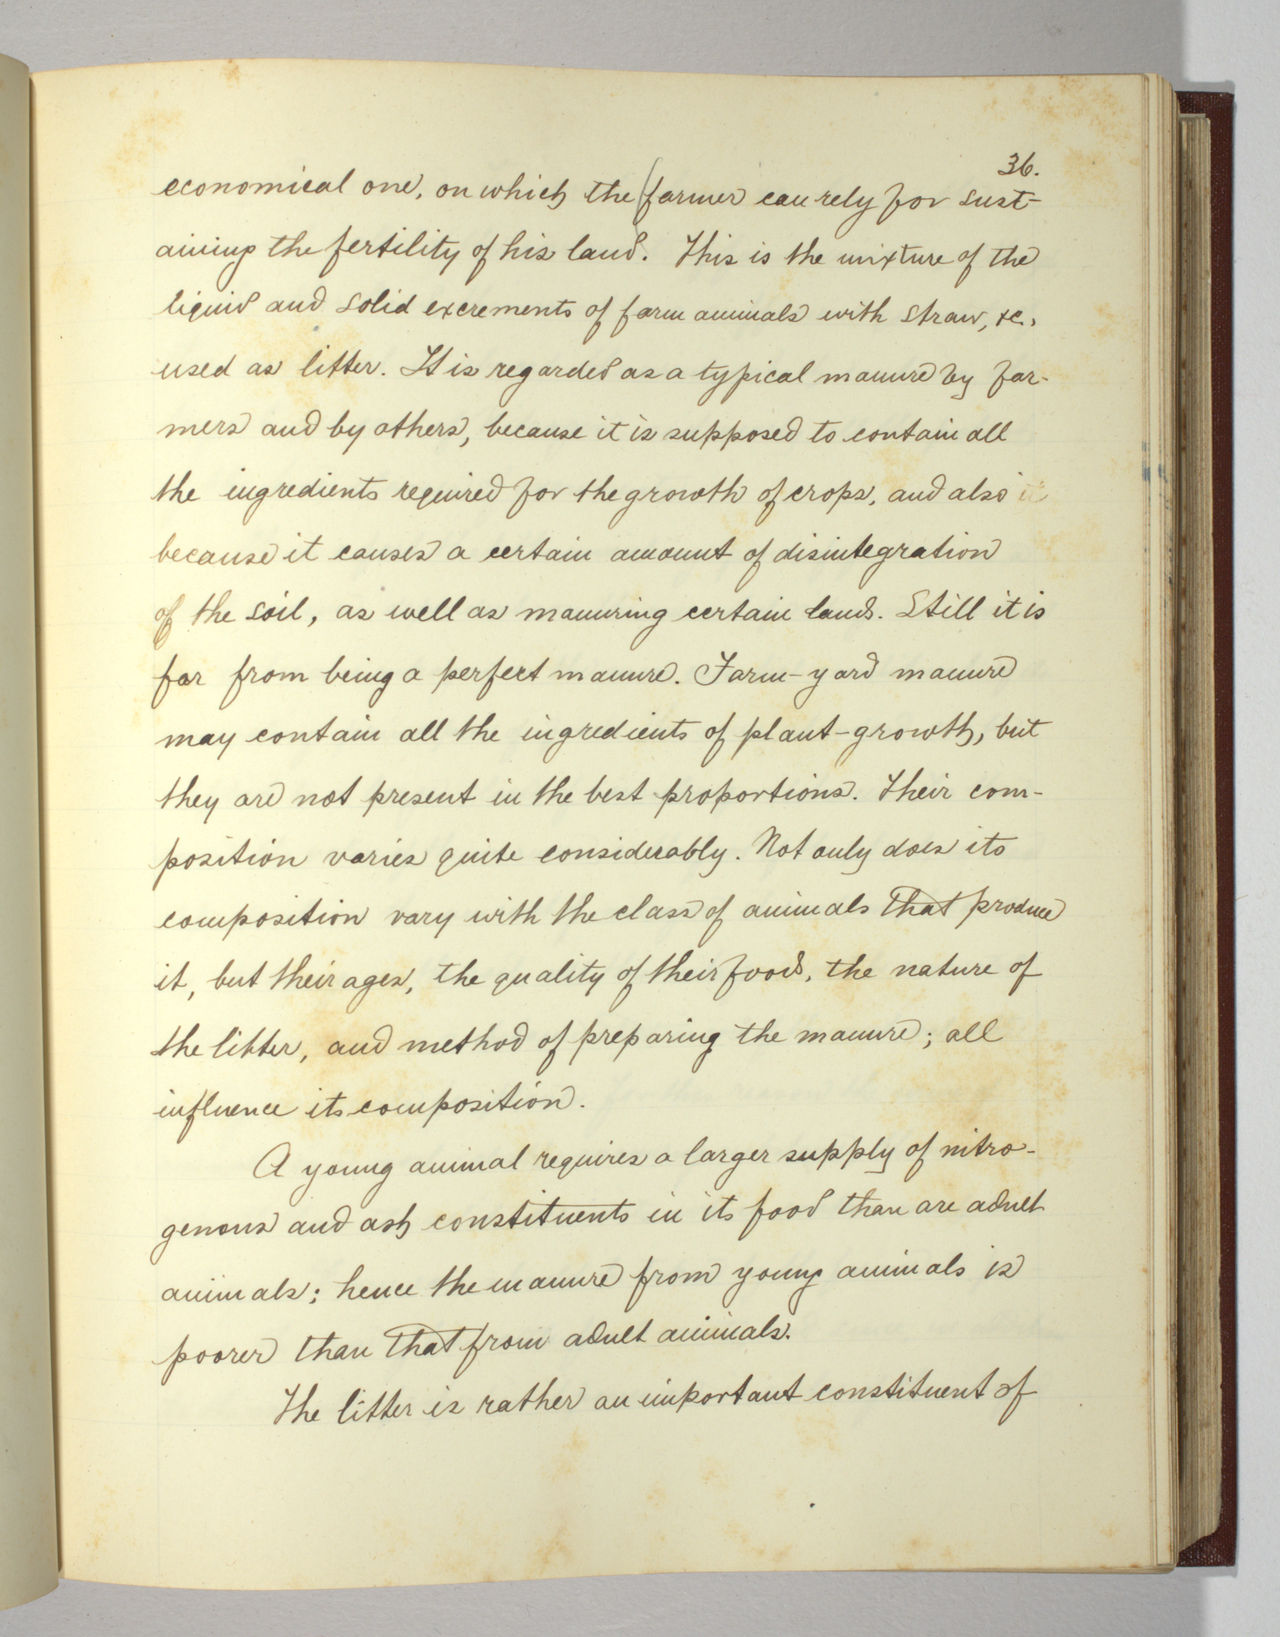 36.
economical one, on which the farmer can rely for sust-
aining the fertility of his land. This is the mixture of the
liquid and solid excrements of farm animals with straw, &c.,
used as litter. It is regarded as a typical manure by far-
mers and by others, because it is supposed to contain all
the ingredients required for the growth of crops, and also
because it causes a certain amount of disintegration
of the soil, as well as manuring certain lands. Still it is
far from being a perfect manure. Farm-yard manure
may contain all the ingredients of plant-growth, but
they are not present in the best proportions. Their com-
position varies quite considerably. Not only does its
composition vary with the class of animals that produce
it, but their ages, the quality of their foods, the nature of
the litter, and method of preparing the manure; all
influence its composition.
A young animal requires a larger supply of nitro-
genous and ash constituents in its food than are adult
animals; hence the manure from young animals is
poorer than that from adult animals.
The litter is rather an important constituent of